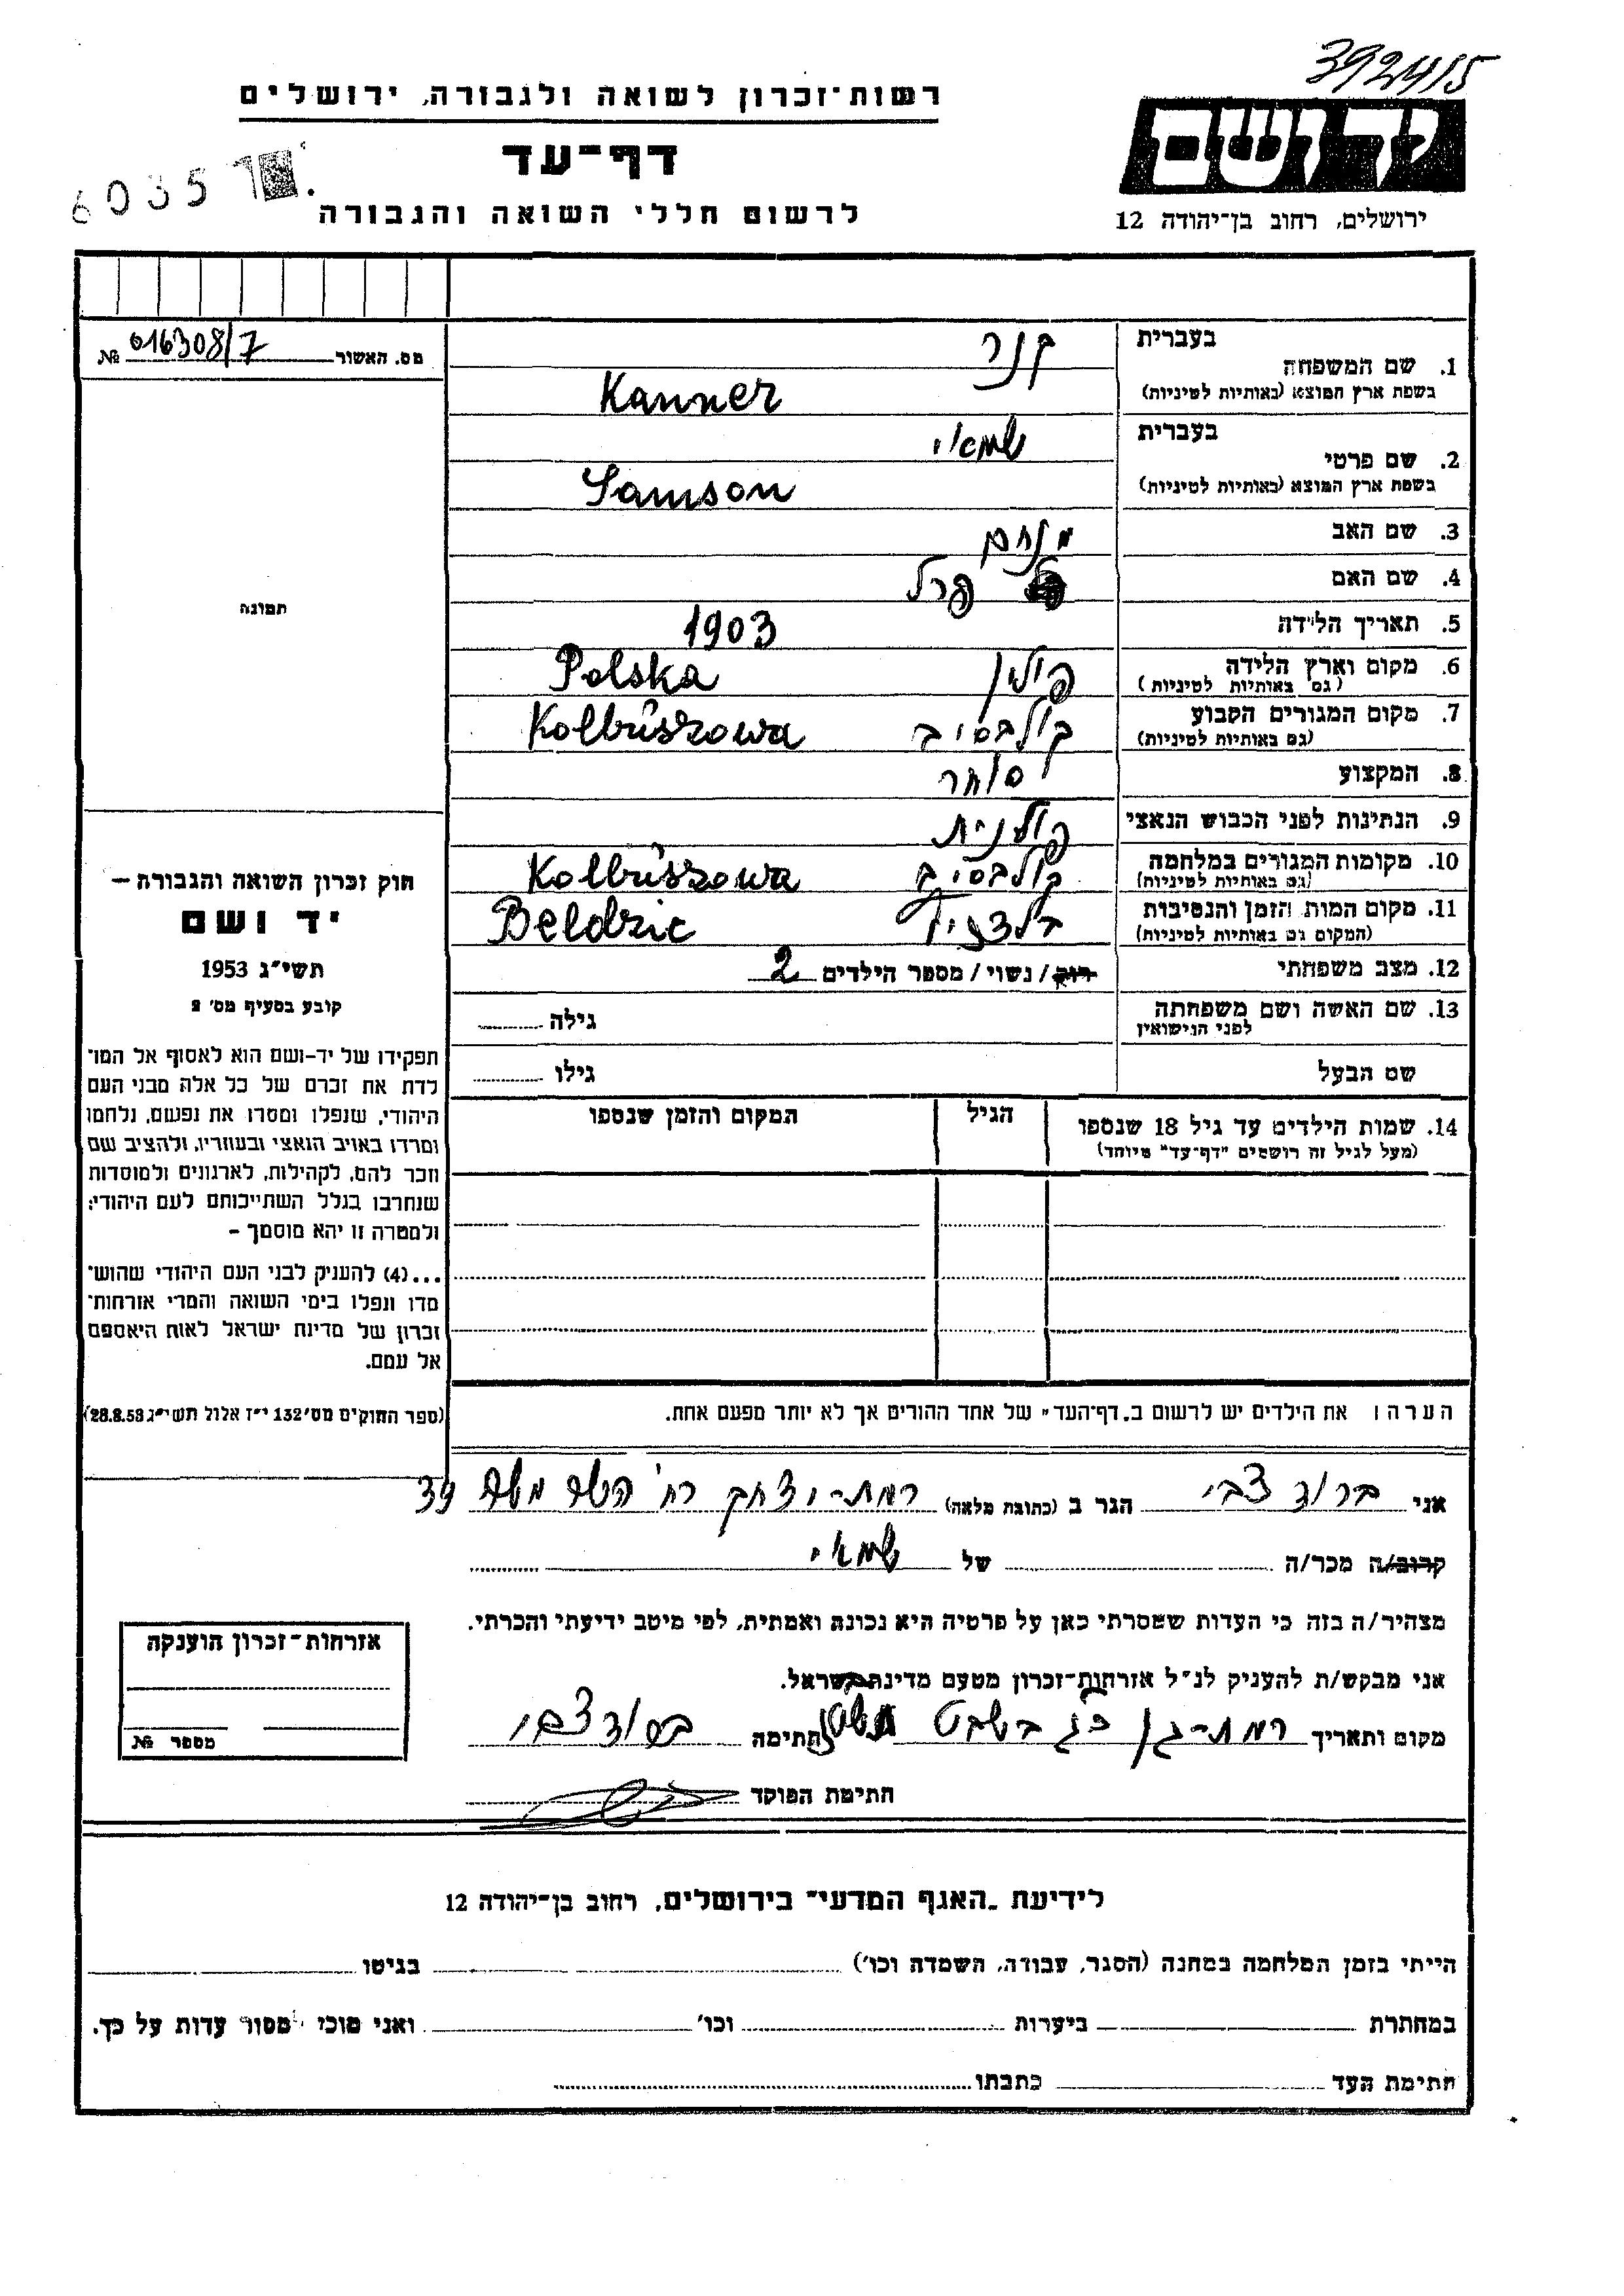 392415
רשות-זכרון לשואה ולגבורה, ירושלים
דף-עד
לרשום חללי השואה והגבורה
יד ושם
ירושלים, רחוב בן-יהודה 12
מס. האשור 016308/7 №
תמונה
1. שם המשפחה
בעברית קנר
בשפת ארץ המוצא (באותיות לטיניות) Kanner
2. שם פרטי
בעברית שמאי
בשפת ארץ המוצא (באותיות לטיניות) Samson
3. שם האב מנחם
4. שם האם פרל
5. תאריך הלידה 1903
6. מקום וארץ הלידה פולין Polska
(גם באותיות לטיניות)
7. מקום המגורים הקבוע קולבסוב Kolbuszowa
(גם באותיות לטיניות)
8. המקצוע סוחר
9. הנתינות לפני הכבוש הנאצי פולנית
10. מקומות המגורים במלחמה קולבסוב Kolbuszowa
(גם באותיות לטיניות)
11. מקום המות הזמן והנסיבות Beldzic
(המקום גם באותיות לטיניות)
12. מצב משפחתי רווק / נשוי / מספר הילדים 2
13. שם האשה ושם משפחתה גילה
לפני הנישואין
שם הבעל גילו
14. שמות הילדים עד גיל 18 שנספו הגיל המקום והזמן שנספו
(מעל לגיל זה רושמים "דף-עד" מיוחד)
חוק זכרון השואה והגבורה –
יד ושם
תשי"ג 1953
קובע בסעיף מס' 2
תפקידו של יד-ושם הוא לאסוף אל המו-
לדת את זכרם של כל אלה מבני העם
היהודי, שנפלו ומסרו את נפשם, נלחמו
ומרדו באויב הנאצי ובעוזריו, ולהציב שם
וזכר להם, לקהילות, לארגונים ולמוסדות
שנחרבו בגלל השתייכותם לעם היהודי;
ולמטרה זו יהא מוסמך –
...(4) להעניק לבני העם היהודי שהוש-
מדו ונפלו בימי השואה והמרי אזרחות-
זכרון של מדינת ישראל לאות היאספם
אל עמם.
(ספר החוקים מס' 132 י"ז אלול תשי"ג 28.8.53)
הערה: את הילדים יש לרשום ב"דף-העד" של אחד ההורים אך לא יותר מפעם אחת.
אני צבי הגר ב (כתובת מלאה) רמת-יצחק רח' 39
קרוב/ה מכר/ה של שמאי
מצהיר/ה בזה כי העדות שמסרתי כאן על פרטיה היא נכונה ואמתית, לפי מיטב ידיעתי והכרתי.
אני מבקש/ת להעניק לנ"ל אזרחות-זכרון מטעם מדינת ישראל.
מקום ותאריך רמת-גן כג בשבט חתימה צבי
חתימת הפוקד
אזרחות-זכרון הוענקה
מספר №
לידיעת "האגף המדעי" בירושלים, רחוב בן-יהודה 12
הייתי בזמן המלחמה במחנה (הסגר, עבודה, השמדה וכו') בגיטו
במחתרת ביערות וכו' ואני מוכן למסור עדות על כך.
חתימת העד כתבתו